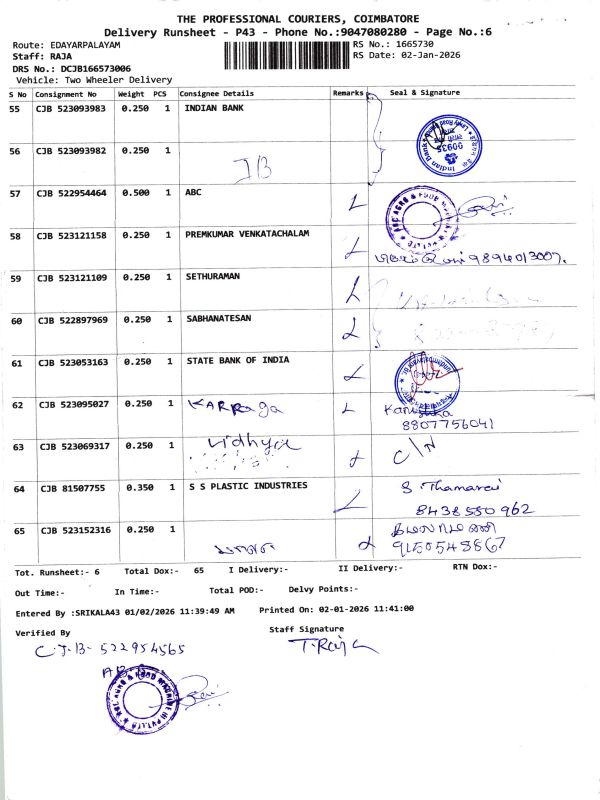 THE PROFESSIONAL COURIERS, COIMBATORE
Delivery Runsheet - P43 - Phone No.:9047080280 - Page No.:6
Route: EDAYARPALAYAM
RS No.: 1665730
Staff: RAJA
RS Date: 02-Jan-2026
DRS No.: DCJB166573006
Vehicle: Two Wheeler Delivery
S No Consignment No Weight PCS Consignee Details Remarks Seal & Signature
55 CJB 523093983 0.250 1 INDIAN BANK
56 CJB 523093982 0.250 1
IB
57 CJB 522954464 0.500 1 ABC
58 CJB 523121158 0.250 1 PREMKUMAR VENKATACHALAM
9894013007.
59 CJB 523121109 0.250 1 SETHURAMAN
60 CJB 522897969 0.250 1 SABHANATESAN
61 CJB 523053163 0.250 1 STATE BANK OF INDIA
62 CJB 523095027 0.250 1 KARRaga
8807756041
63 CJB 523069317 0.250 1 Vidhya C/N
64 CJB 81507755 0.350 1 S S PLASTIC INDUSTRIES S. Thamarai
8438550962
65 CJB 523152316 0.250 1
9150548867
Tot. Runsheet:- 6 Total Dox:- 65 I Delivery:- II Delivery:- RTN Dox:-
Out Time:- In Time:- Total POD:- Delvy Points:-
Entered By :SRIKALA43 01/02/2026 11:39:49 AM Printed On: 02-01-2026 11:41:00
Verified By Staff Signature
C.J.B- 522954565 T.Raja